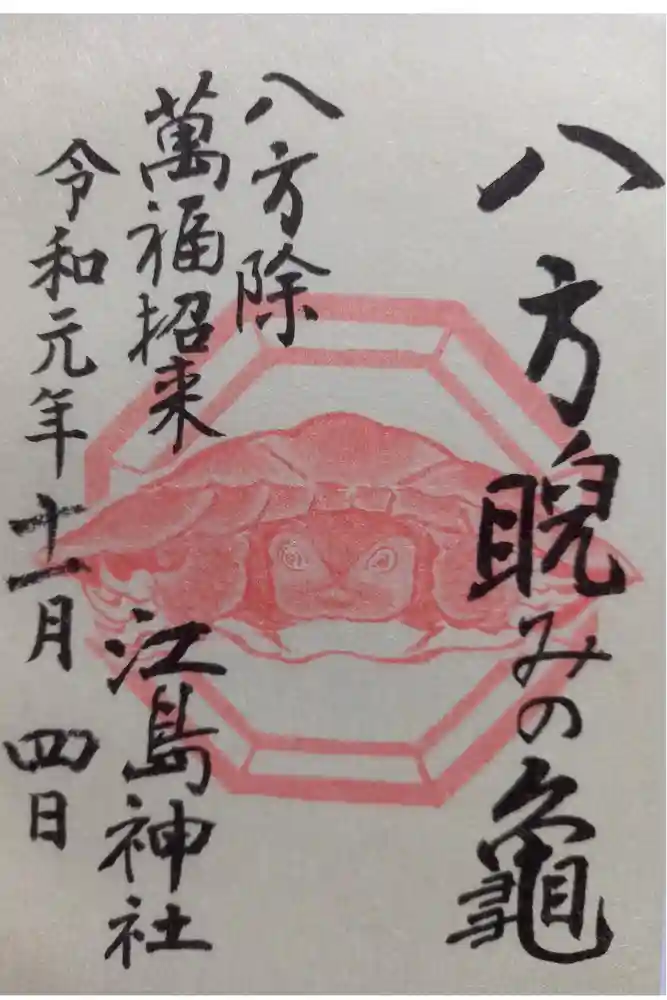 八方睨みの龜
八方除
萬福招来
江島神社
令和元年十一月四日